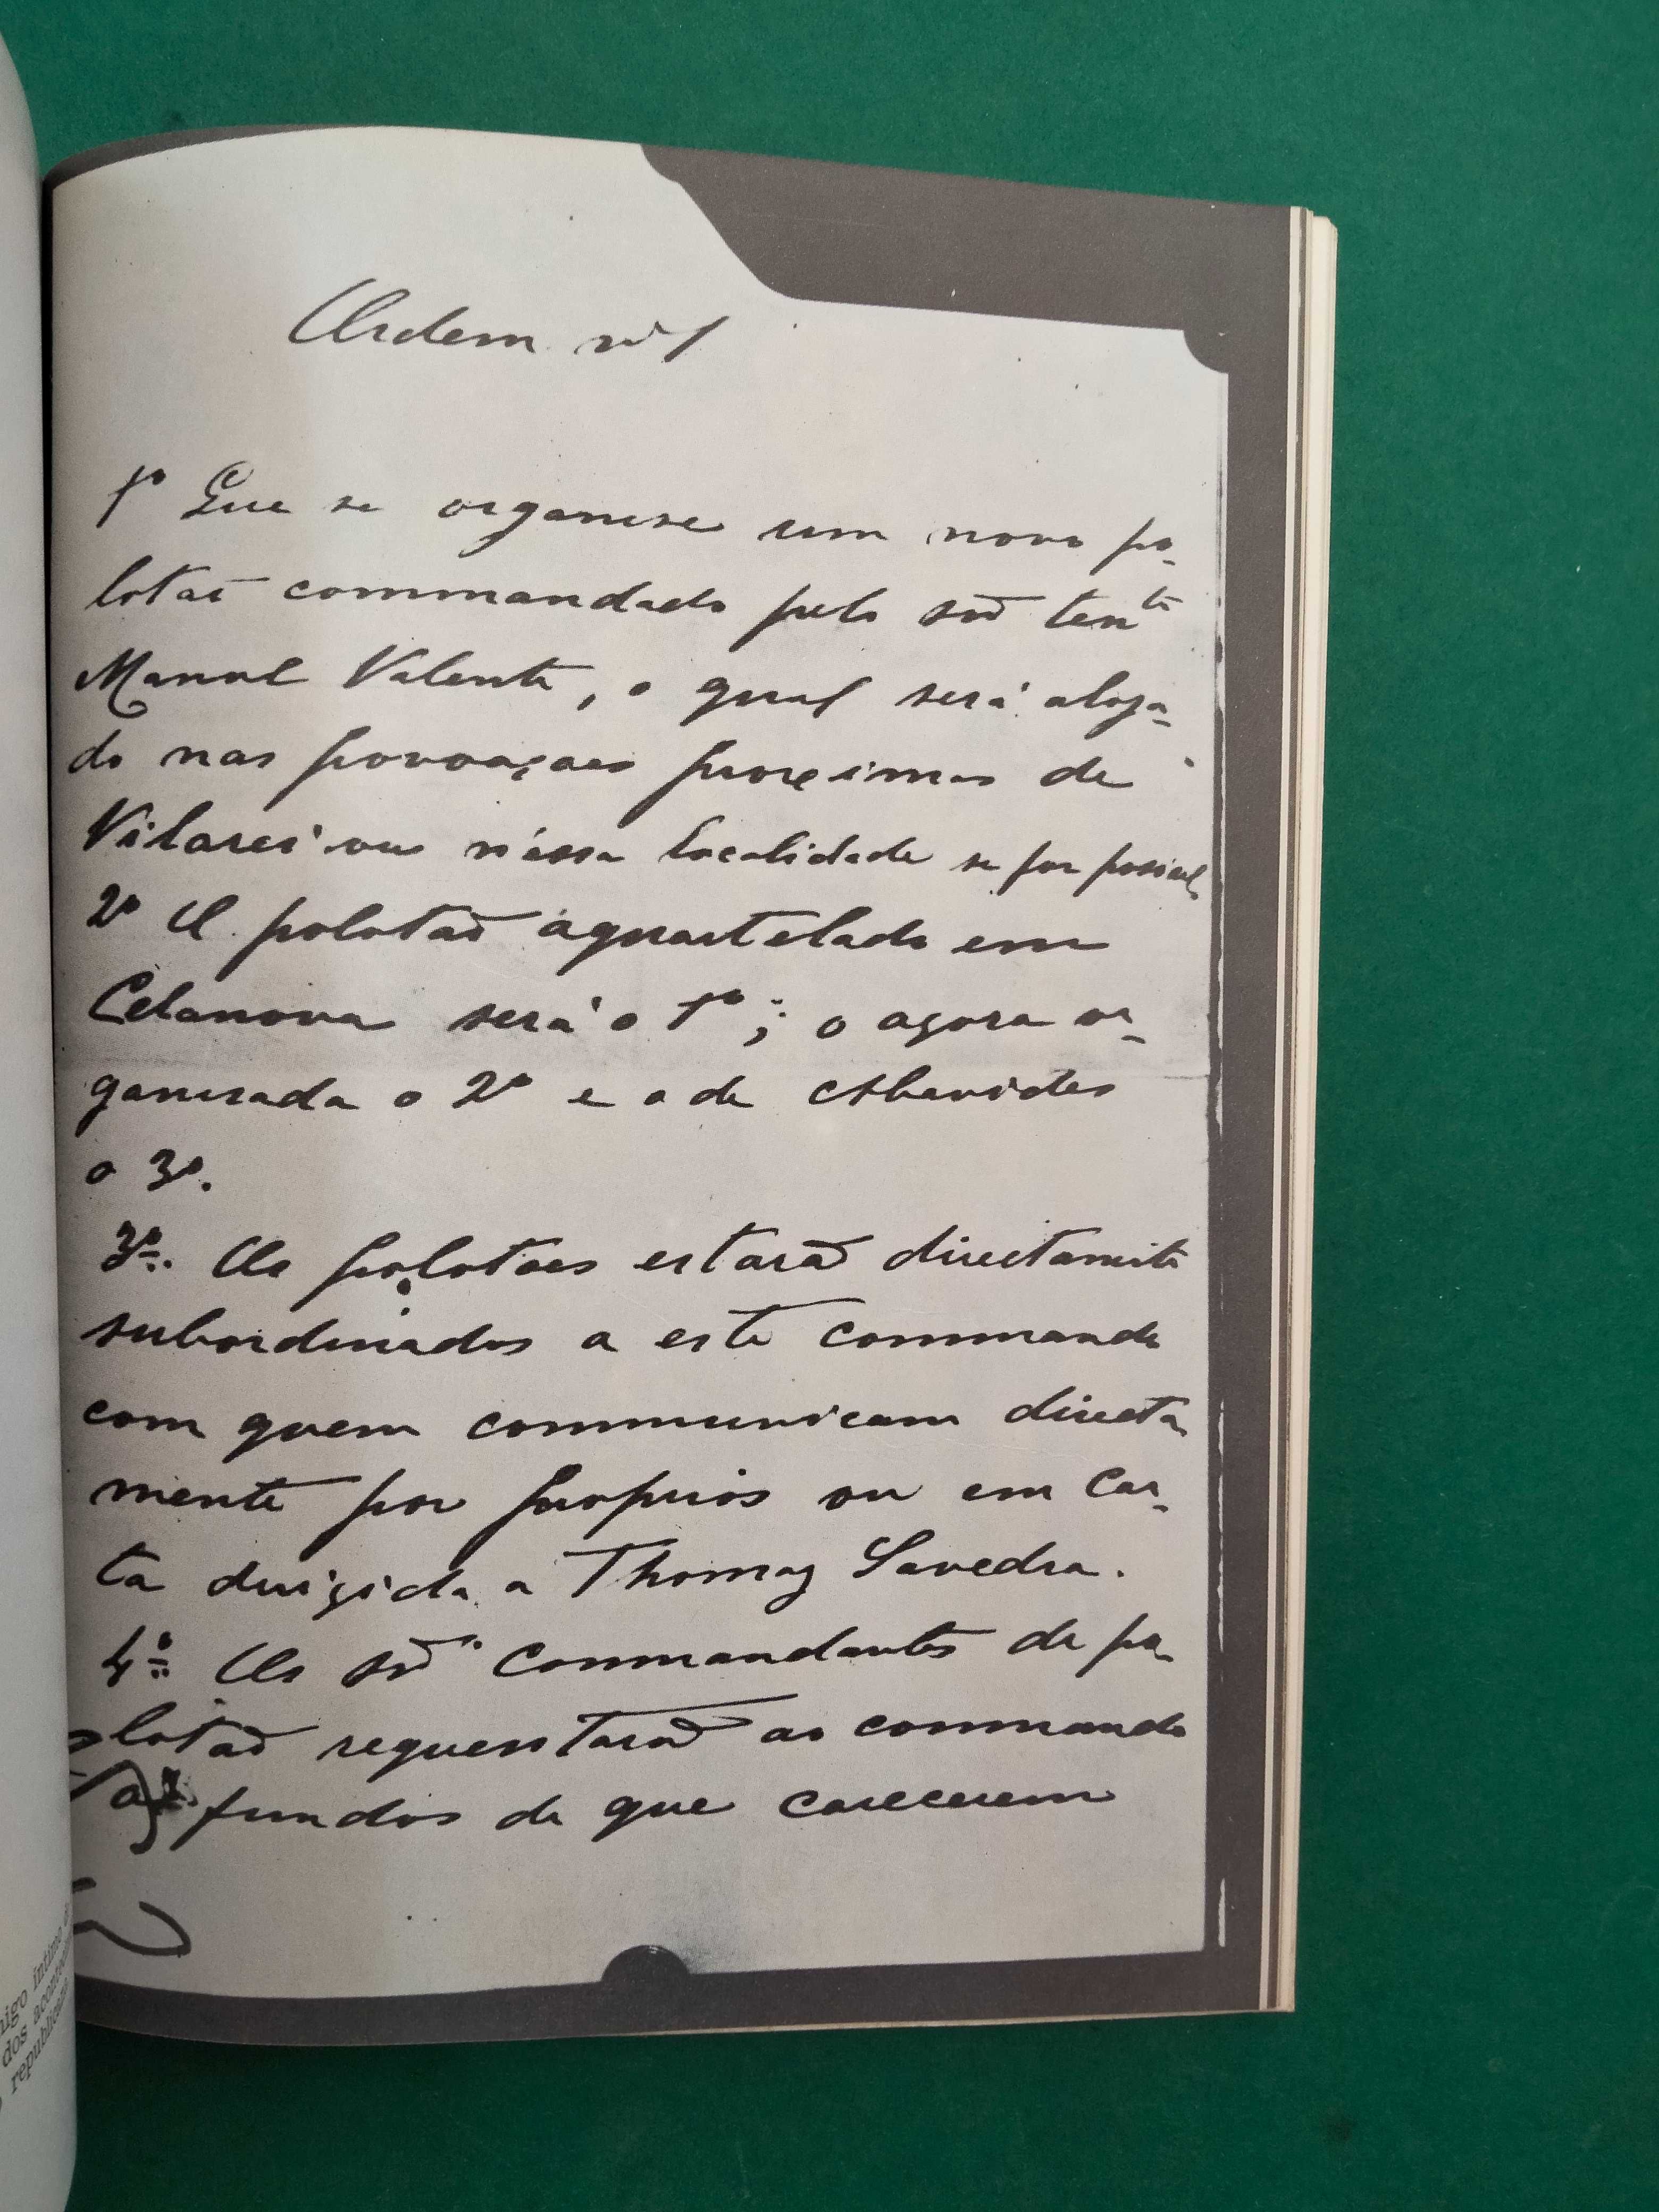 Ordem nº 1
1º Que se organise um novo po-
lotão commandado pelo snr tente
Manuel Valente, o qual será aloja-
do nas povoações proximas de
Vilarei ou n'essa localidade se for possivel
2º O polotão aquartelado em
Celanova será o 1º; o agora or-
ganisada o 2º e o de Abavides
o 3º.
3º. Os polotões estarão directamte
subordinados a este commando
com quem communicam directa-
mente por proprios ou em car-
ta dirigida a Thomaz Savedra.
4º Os snrs Commandantes de po-
lotão requesitarão ao commando
fundos de que carecerem
igo íntimo
dos
republicano